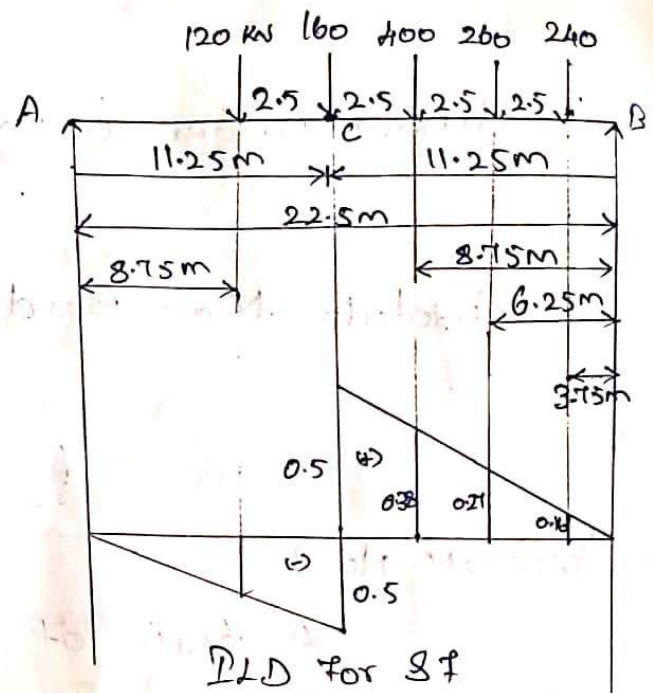 120 KN 160 400 260 240
A 2.5 2.5 2.5 2.5 B
C
11.25m 11.25m
22.5m
8.75m 8.75m
6.25m
3.75m
0.5 (+) 0.38 0.27 0.16
(-) 0.5
ILD For SF